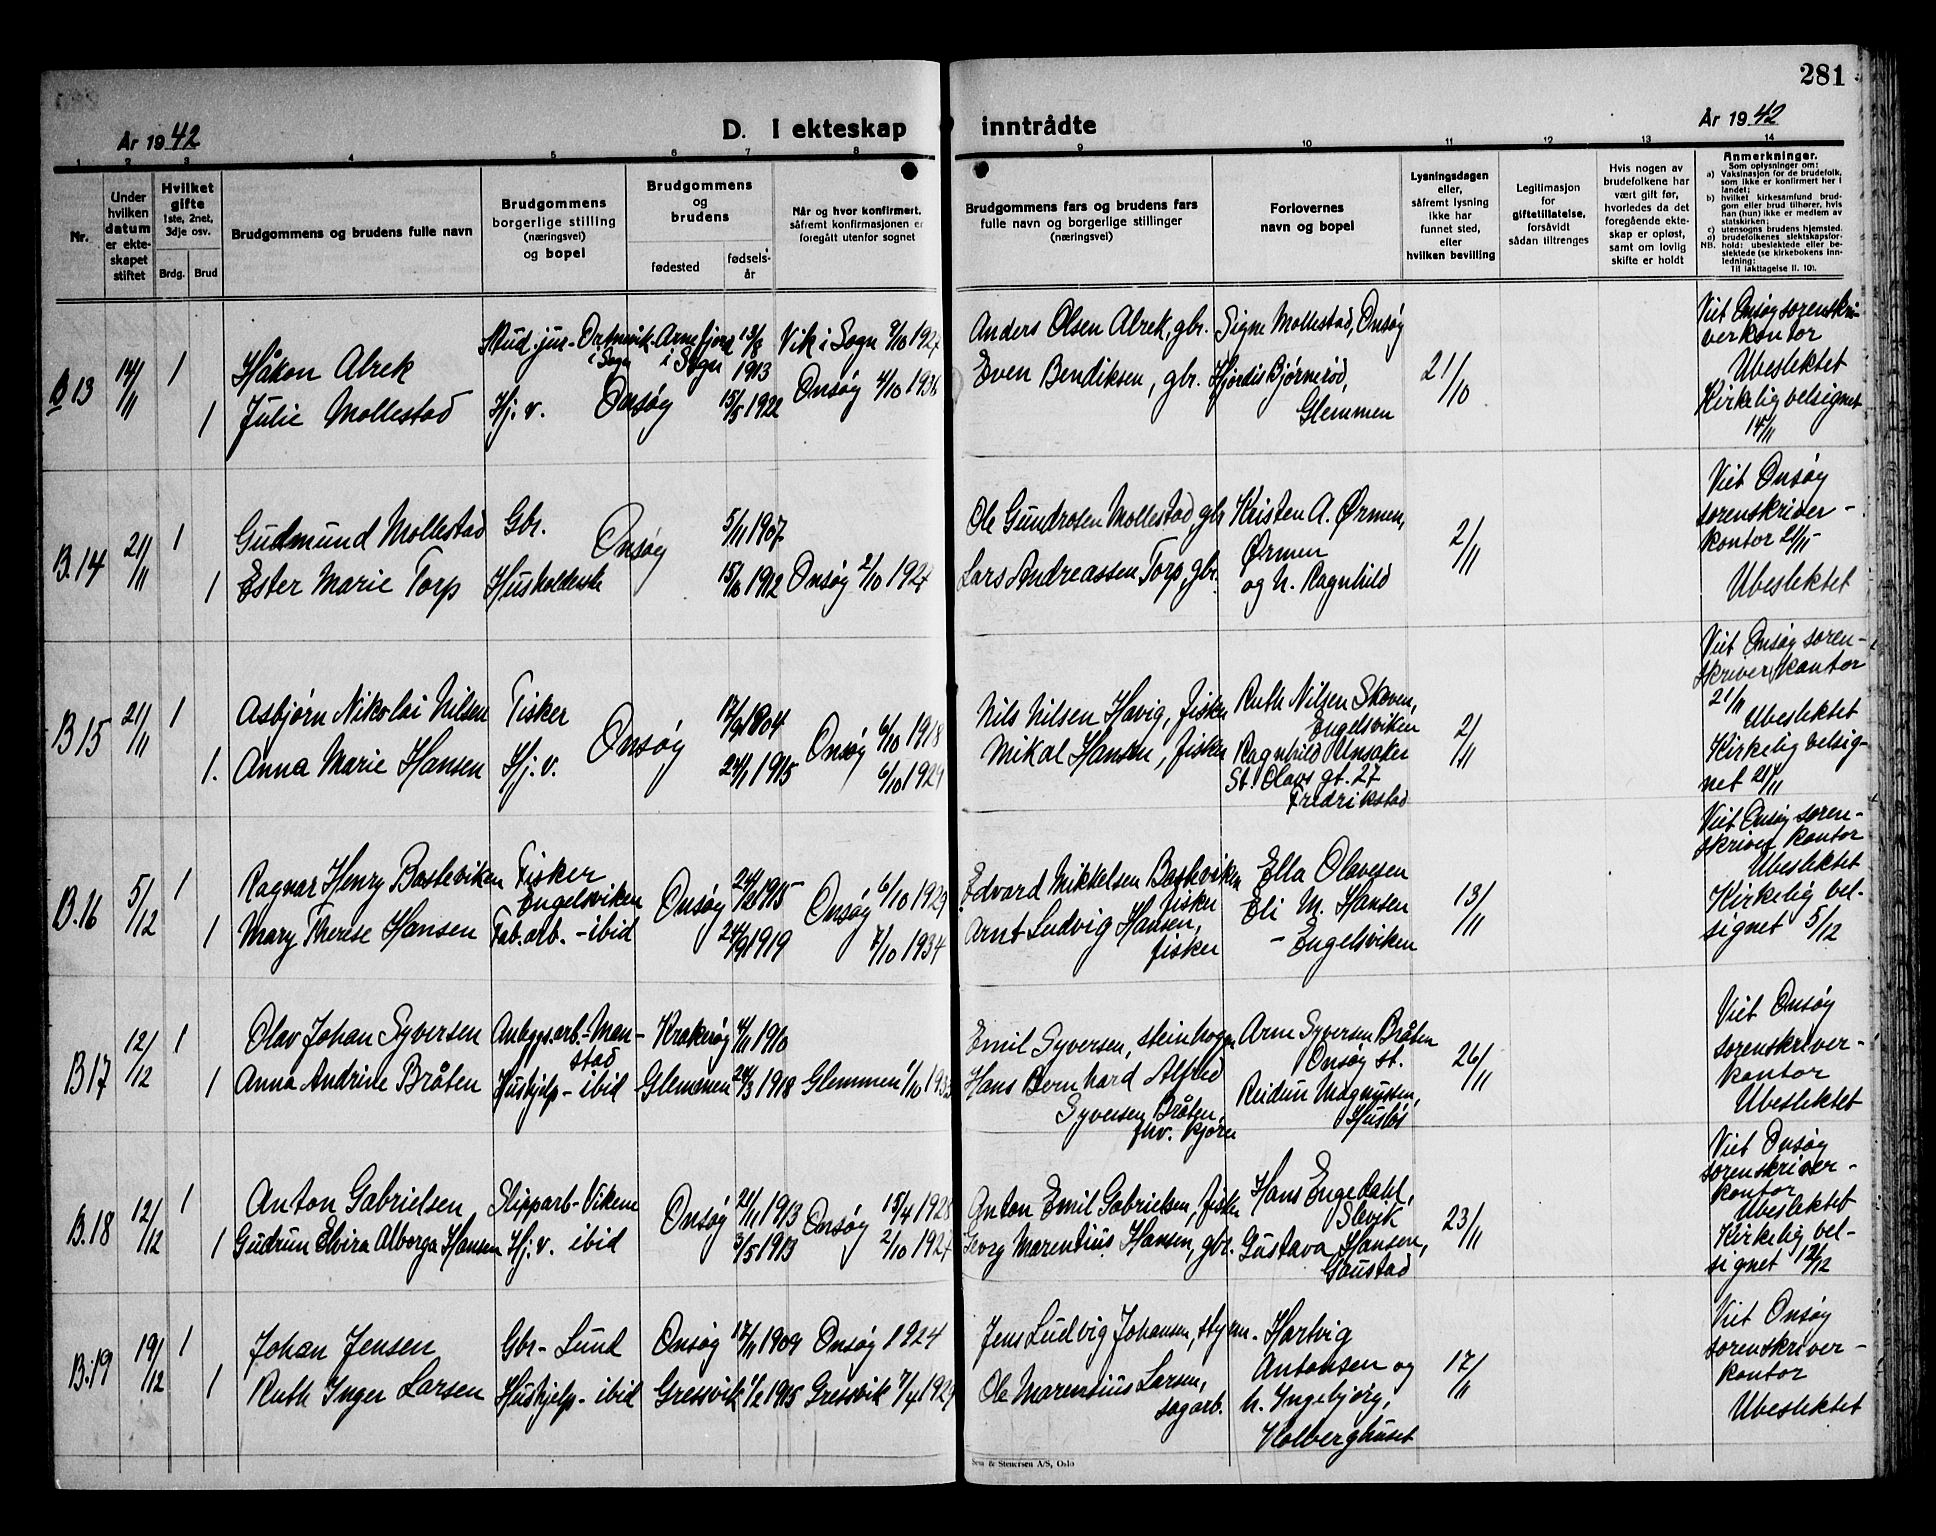 281
År 1942
D. I ekteskap inntrådte
År 1942
1 2 3 4 5 6 7 8 9 10 11 12 13 14
Nr.
Under hvilken datum er ekteskapet stiftet
Hvilket gifte
1ste, 2net, 3dje osv.
Brdg. Brud
Brudgommens og brudens fulle navn
Brudgommens borgerlige stilling (næringsvei) og bopel
Brudgommens og brudens
fødested
fødselsår
Når og hvor konfirmert, såfremt konfirmasjonen er foregått utenfor sognet
Brudgommens fars og brudens fars fulle navn og borgerlige stillinger (næringsvei)
Forlovernes navn og bopel
Lysningsdagen eller, såfremt lysning ikke har funnet sted, efter hvilken bevilling
Legitimasjon for giftetillatelse, forsåvidt sådan tiltrenges
Hvis nogen av brudefolkene har vært gift før, hvorledes da det foregående ekteskap er opløst, samt om lovlig skifte er holdt
Anmerkninger.
Som oplysninger om:
a) Vaksinasjon for de brudefolk, som ikke er konfirmert her i landet;
b) hvilket kirkesamfund brudgom eller brud tilhører, hvis han (hun) ikke er medlem av statskirken;
c) utensogns brudens hjemsted.
d) brudefolkenes slektskapsforhold: ubeslektede eller beslektede (se kirkebokens innledning:
NB. Til iakttagelse II. 10).
B 13 14/11 1 Håkon Alrek Stud. jur - Ortnevik i Sogn Arnefjord i Sogn 13/8 1913 Vik i Sogn 9/10 1927 Anders Olsen Alrek, gbr. Signe Mollestad, Onsøy 21/10
1 Julie Mollestad Hj. v. Onsøy 15/5 1922 Onsøy 4/10 1936 Even Bendiksen, gbr. Hjördis Bjørnerød, Glemmen
Viet Onsøy sorenskriverkontor
Ubeslektet
Kirkelig velsignet
14/11
B.14 21/11 1 Gudmund Mollestad Gbr. Onsøy 5/11 1907 Ole Gundrosen Mollestad, gbr Kristen A. Ørmen, Ørmen 2/11
1 Ester Marie Torp Husholderske 15/10 1912 Onsøy 2/10 1927 Lars Andreassen Torp, gbr. og h. Ragnhild
Viet Onsøy
sorenskriver-
kontor 21/11
Ubeslektet
B 15 21/11 1 Asbjørn Nikolai Nilsen Fisker Onsøy 17/9 1904 Onsøy 6/10 1918 Nils Nilsen Havig, fisker Ruth Nilsen Skoven, Engelsviken 2/11
1. Anna Marie Hansen Hj. v. 24/1 1915 6/10 1929 Mikal Hansen, fisker Ragnhild Unsater St. Olavs gt. 27 Fredrikstad
Viet Onsøy soren-
skriverkontor
21/11
Ubeslektet
Kirkelig velsig-
net 21/11
B.16 5/12 1 Ragnar Henry Basteviken Fisker Engelsviken Onsøy 1915 Onsøy 6/10 1929 Edvard Mikkelsen Basteviken fisker Ella Olavesen 13/11
1 Mary Therese Hansen Fab. arb. - ibid 24/9 1919 7/10 1934 Arnt Ludvig Hansen, fisker Eli M. Hansen - Engelsviken
Viet Onsøy soren-
skriver kontor
Ubeslektet
Kirkelig vel-
signet 5/12
B 17 12/12 1 Olav Johan Syversen Anleggsarb. - Manstad Krakerøy 4/11 1910 Emil Syversen, steinhogger Arne Syversen Bråten Onsøy st. 26/11
1 Anna Andrine Bråten Hushjelp - ibid Glemmen 24/3 1918 Glemmen Hans Bernhard Alfred Syversen Bråten, fhv. kjøre Reidun Magnussen, Husløs
Viet Onsøy
sorenskriver-
kontor
Ubeslektet
B.18 12/12 1 Anton Gabrielsen Slipparb - Vikene Onsøy 21/11 1913 Onsøy 15/4 1928 Anton Emil Gabrielsen, fisker Hans Engedahl, Slevik 23/11
1 Gudrun Elvira Alborga Hansen Hj. v. ibid 3/5 1913 2/10 1927 Georg Marentius Hansen, gbr. Gustava Hansen, Gaustad
Viet Onsøy
sorenskriver-
kontor
Ubeslektet
Kirkelig vel-
signet 12/12
B.19 19/12 1 Johan Jensen Gbr - Lund Onsøy 17/11 1909 Onsøy 1924 Jens Ludvig Johansen, styrm. Hartvig Antonsen og 17/11
1 Ruth Inger Larsen Hushjelp - ibid Gressvik 1/2 1915 Gressvik 1929 Ole Marentius Larsen, sagarb. h. Ingebjörg, Holberghuset
Viet Onsøy
sorenskriver-
kontor
Ubeslektet
Sem & Stenersen A/S, Oslo